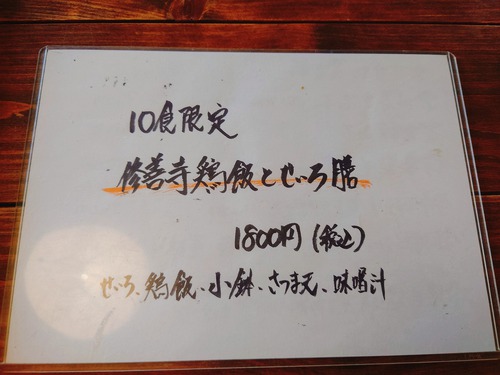 10食限定
修善寺鶏飯とせいろ膳
1800円(税込)
せいろ、鶏飯、小鉢、さつま天、味噌汁